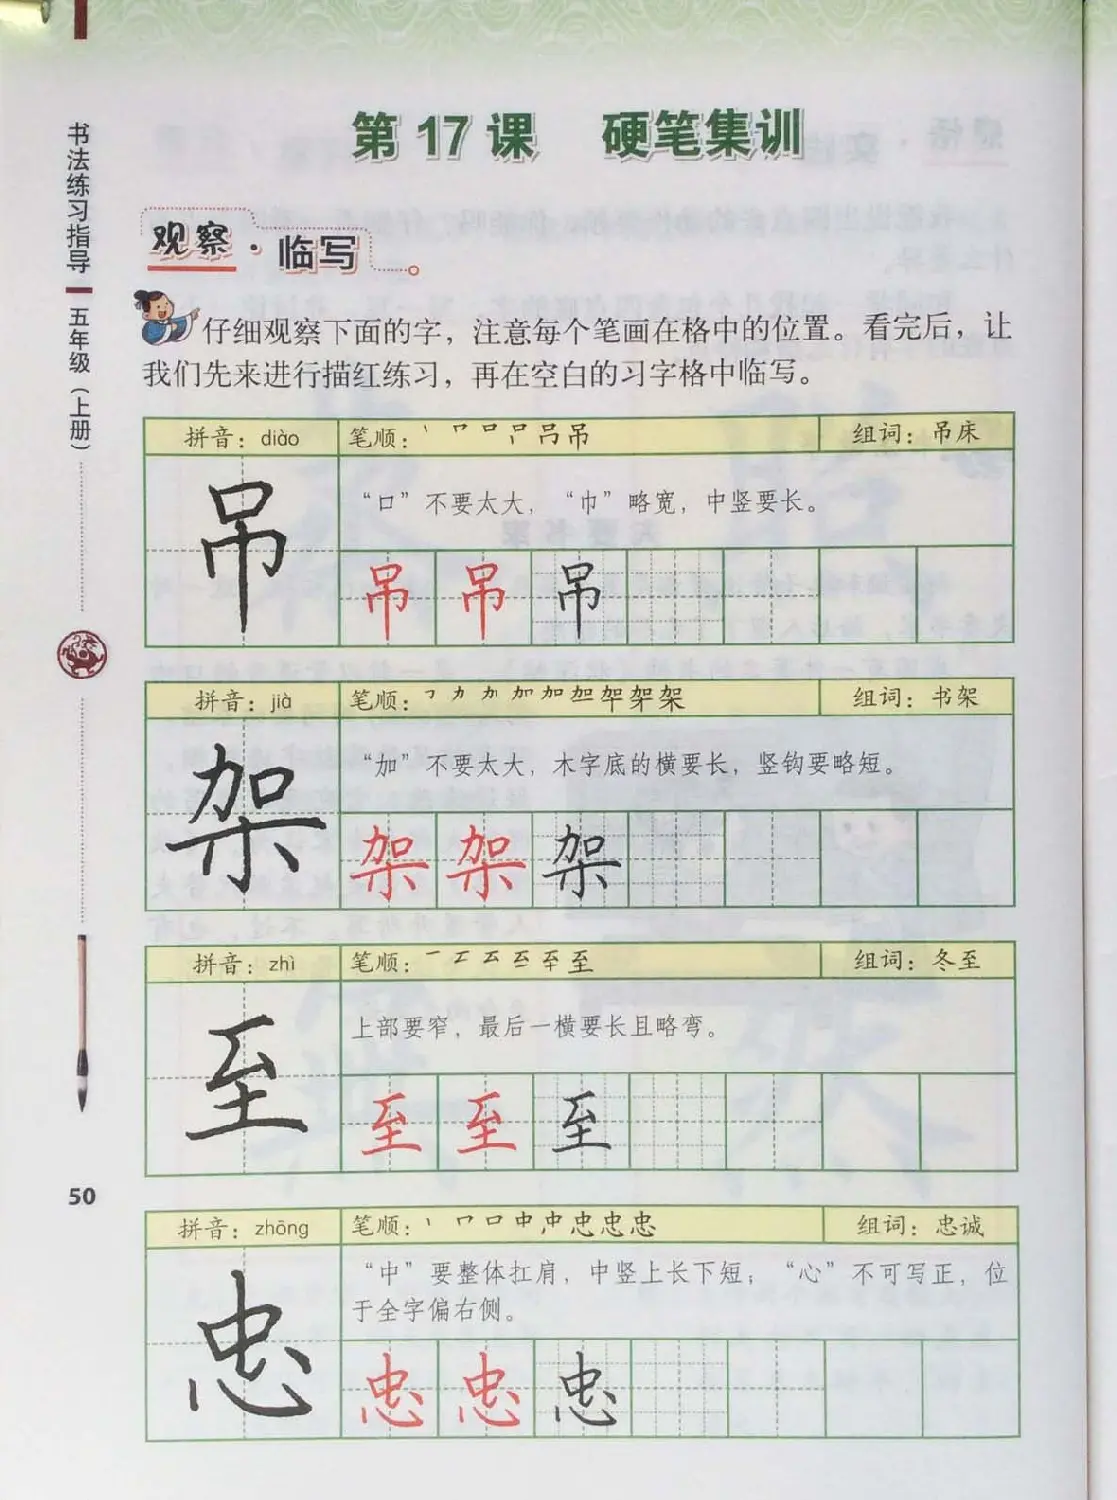 第 17 课 硬笔集训
书法练习指导 五年级（上册）
观察·临写
仔细观察下面的字，注意每个笔画在格中的位置。看完后，让
我们先来进行描红练习，再在空白的习字格中临写。
拼音：diào 笔顺： 组词：吊床
吊
“口”不要太大，“巾”略宽，中竖要长。
吊 吊 吊
拼音：jià 笔顺： 组词：书架
架
“加”不要太大，木字底的横要长，竖钩要略短。
架 架 架
拼音：zhì 笔顺： 组词：冬至
至
上部要窄，最后一横要长且略弯。
至 至 至
50
拼音：zhōng 笔顺： 组词：忠诚
忠
“中”要整体扛肩，中竖上长下短；“心”不可写正，位
于全字偏右侧。
忠 忠 忠